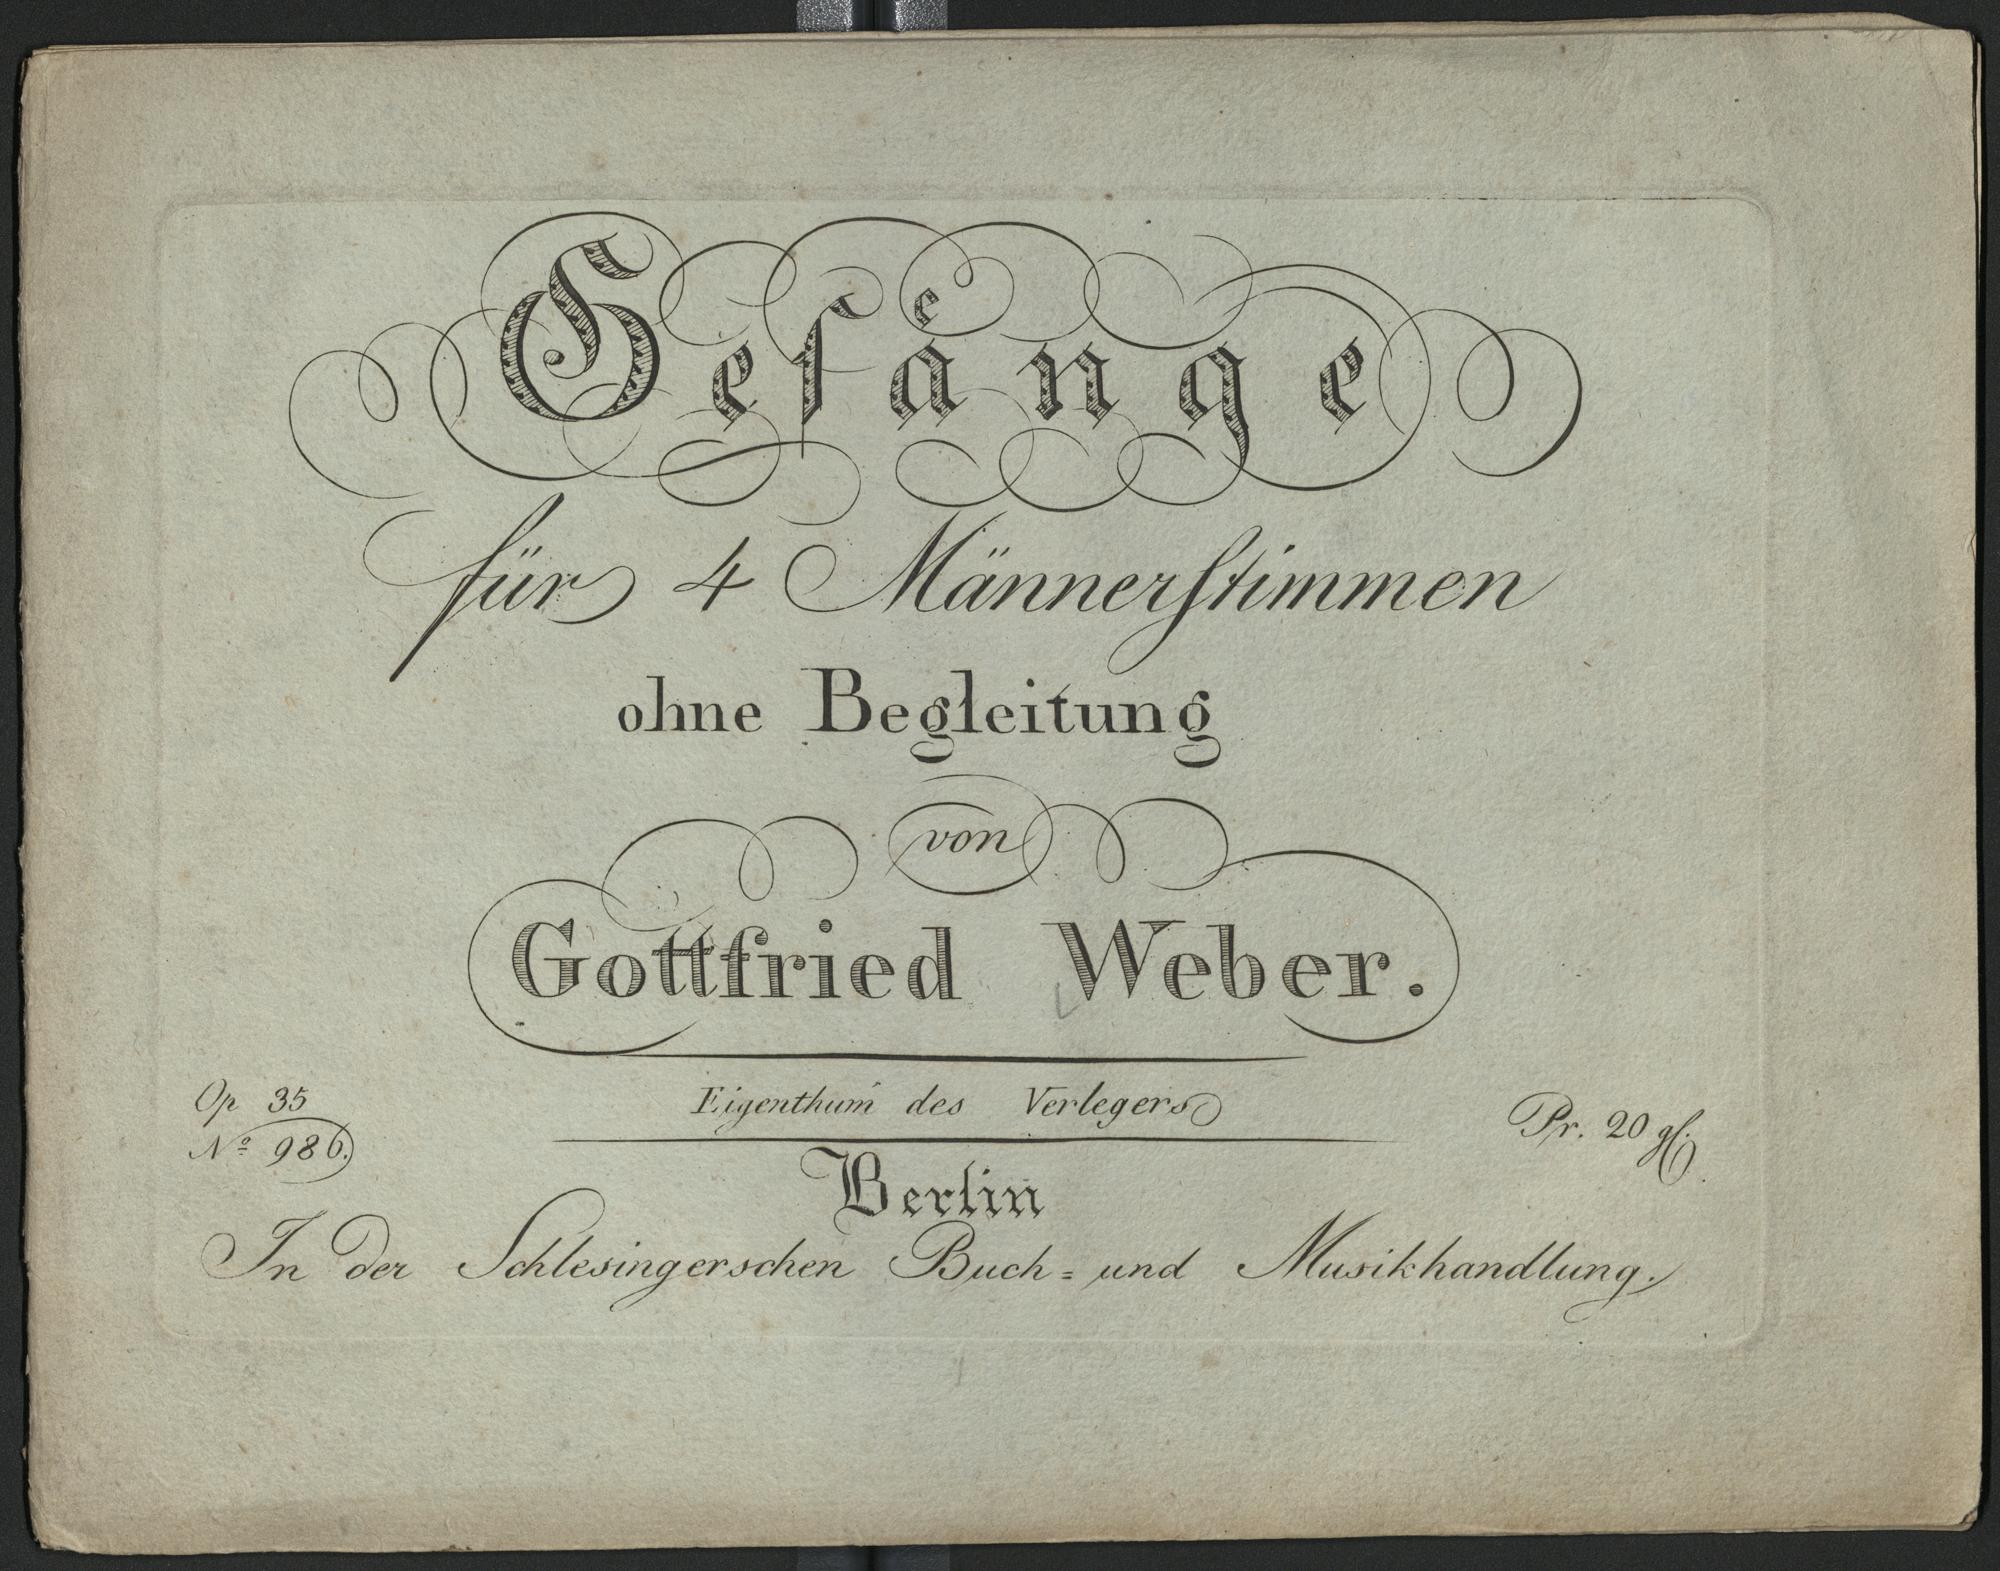 Gesänge
für 4 Männerstimmen
ohne Begleitung
von
Gottfried Weber.
Op 35
Eigenthum des Verlegers
Pr. 20 gf.
Nº 986.
Berlin
In der Schlesingerschen Buch= und Musikhandlung.